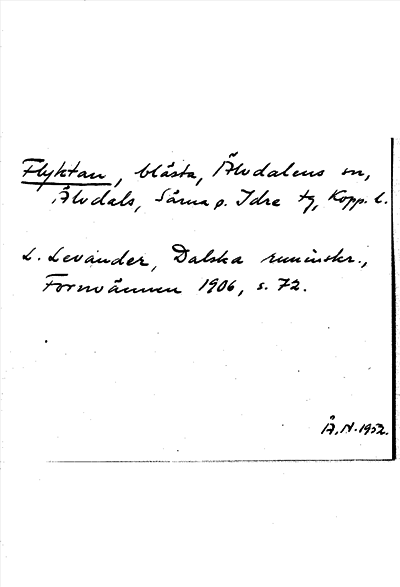 Flyktan, blåsta, Älvdalens sn,
Älvdals, Särna o. Idre tg, Kopp. l.
L. Levander, Dalska runinskr.,
Fornvännen 1906, s. 72.
Å. N. 1952.